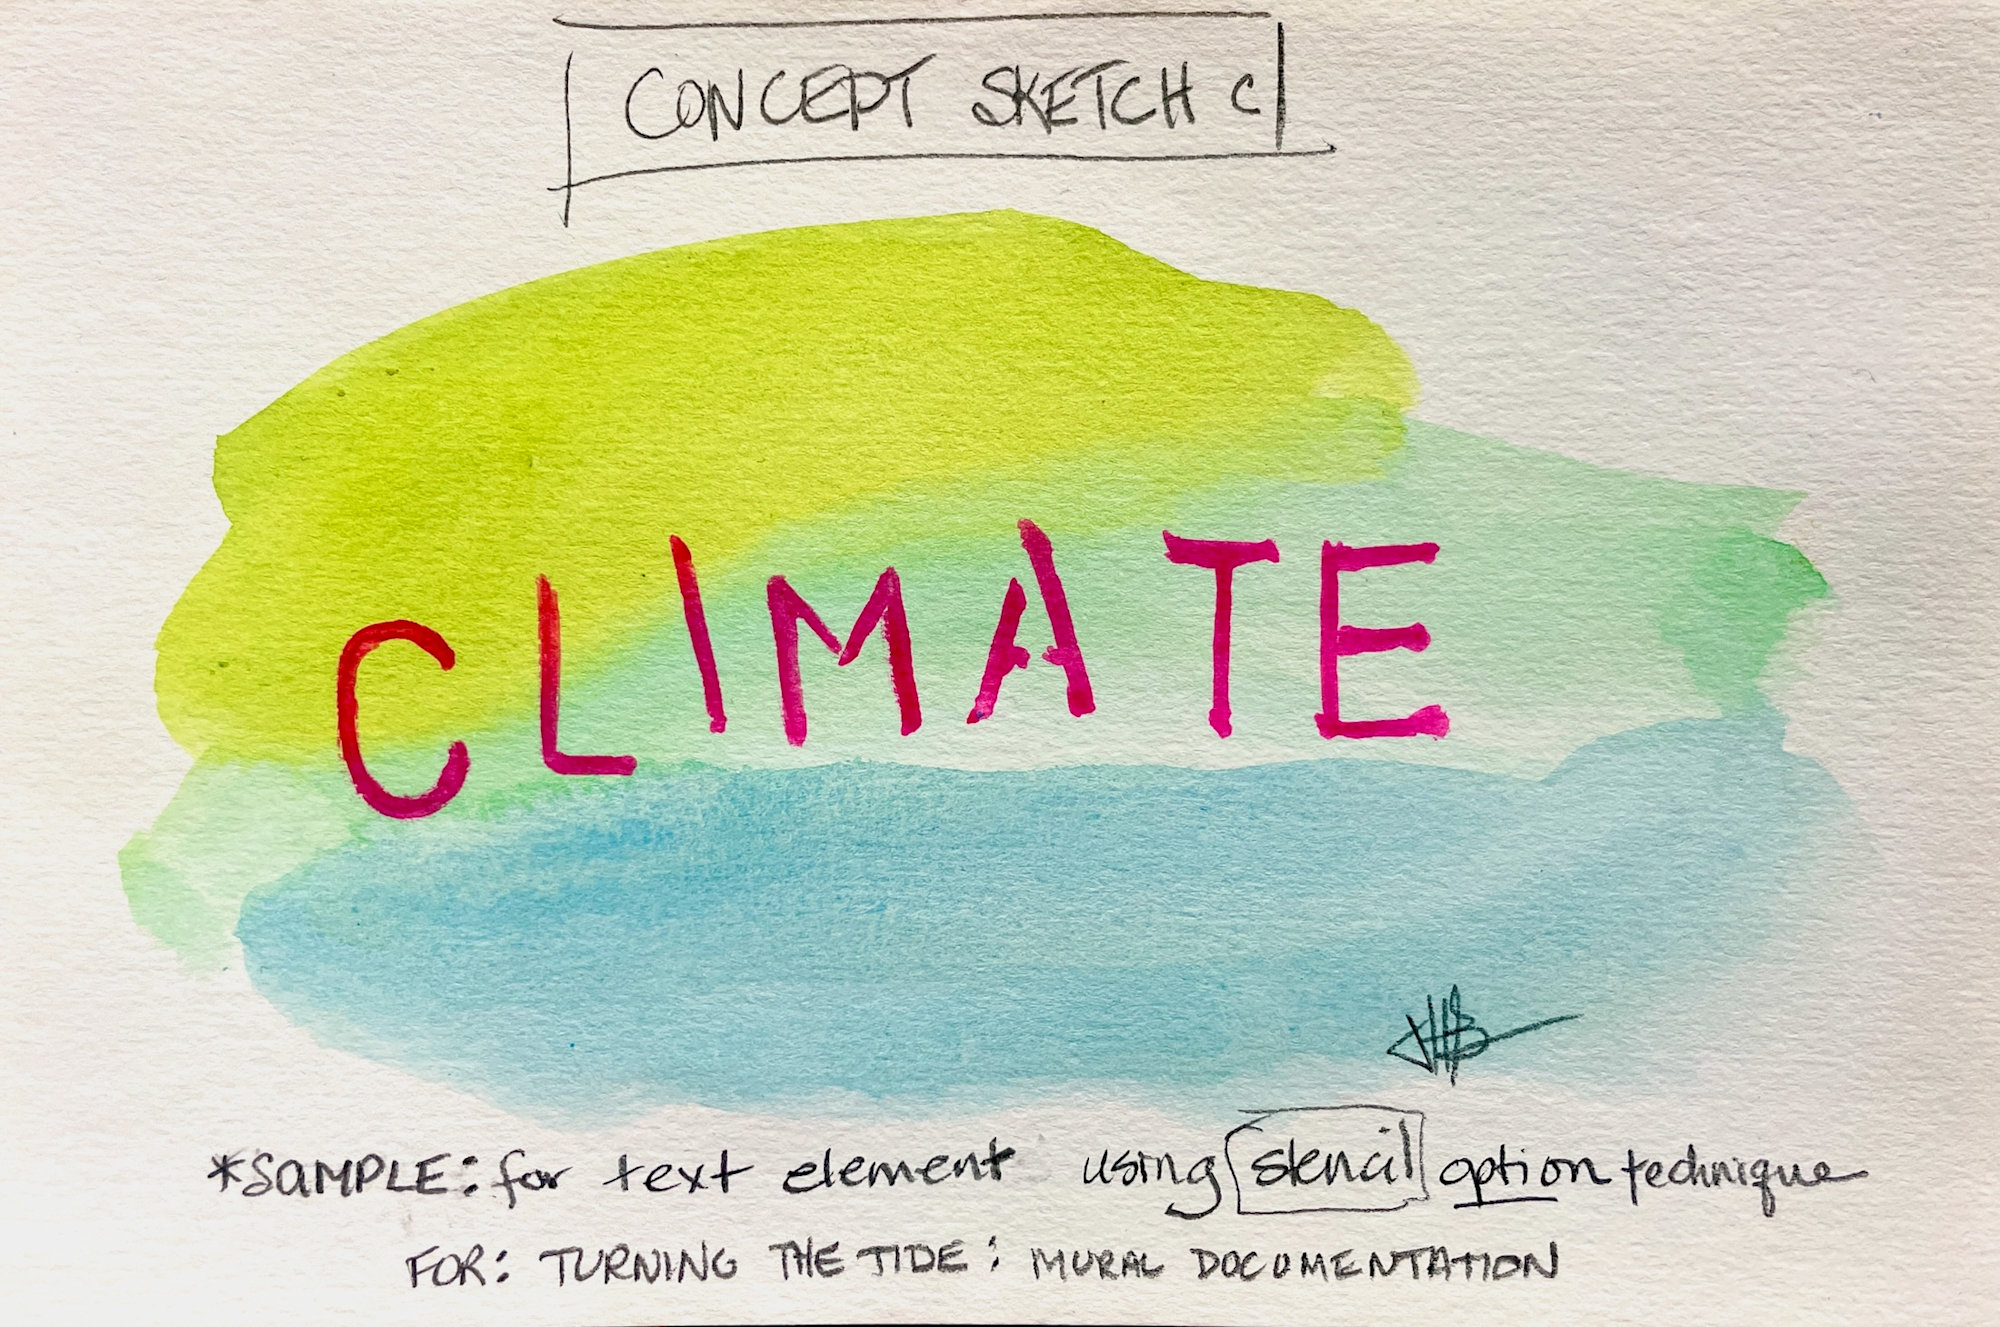 CONCEPT SKETCH C
CLIMATE
*SAMPLE: for text element using stencil option technique
FOR: TURNING THE TIDE: MURAL DOCUMENTATION